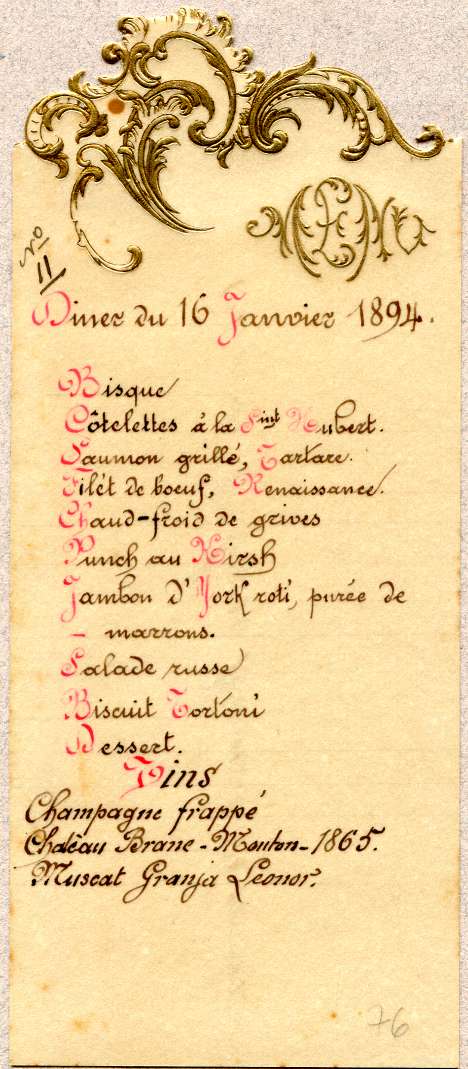 No
11
Diner du 16 Janvier 1894.
Bisque
Côtelettes à la Sint Hubert.
Saumon grillé, Tartare.
Filét de boeuf, Renaissance.
Chaud-froid de grives
Punch au Kirsh
Jambon d'York roti, purée de
- marrons.
Salade russe
Biscuit Tortoni
Dessert.
Vins
Champagne frappé
Chatêau Brane-Mouton-1865.
Muscat Granja Leonor.
76